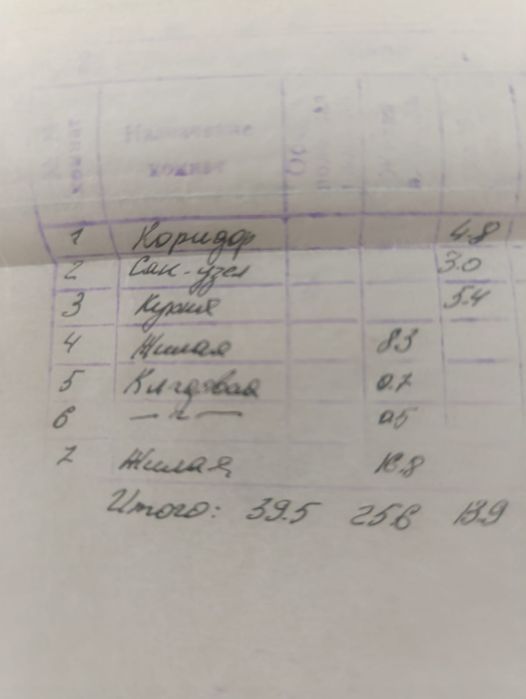 Назначение комнат
1 Коридор 4.8
2 Сан-узел 3.0
3 Кухня 5.4
4 Жилая 8.3
5 Кладовая 0.7
6 — " — 0.5
7 Жилая 16.8
Итого: 39.5 25.6 13.9